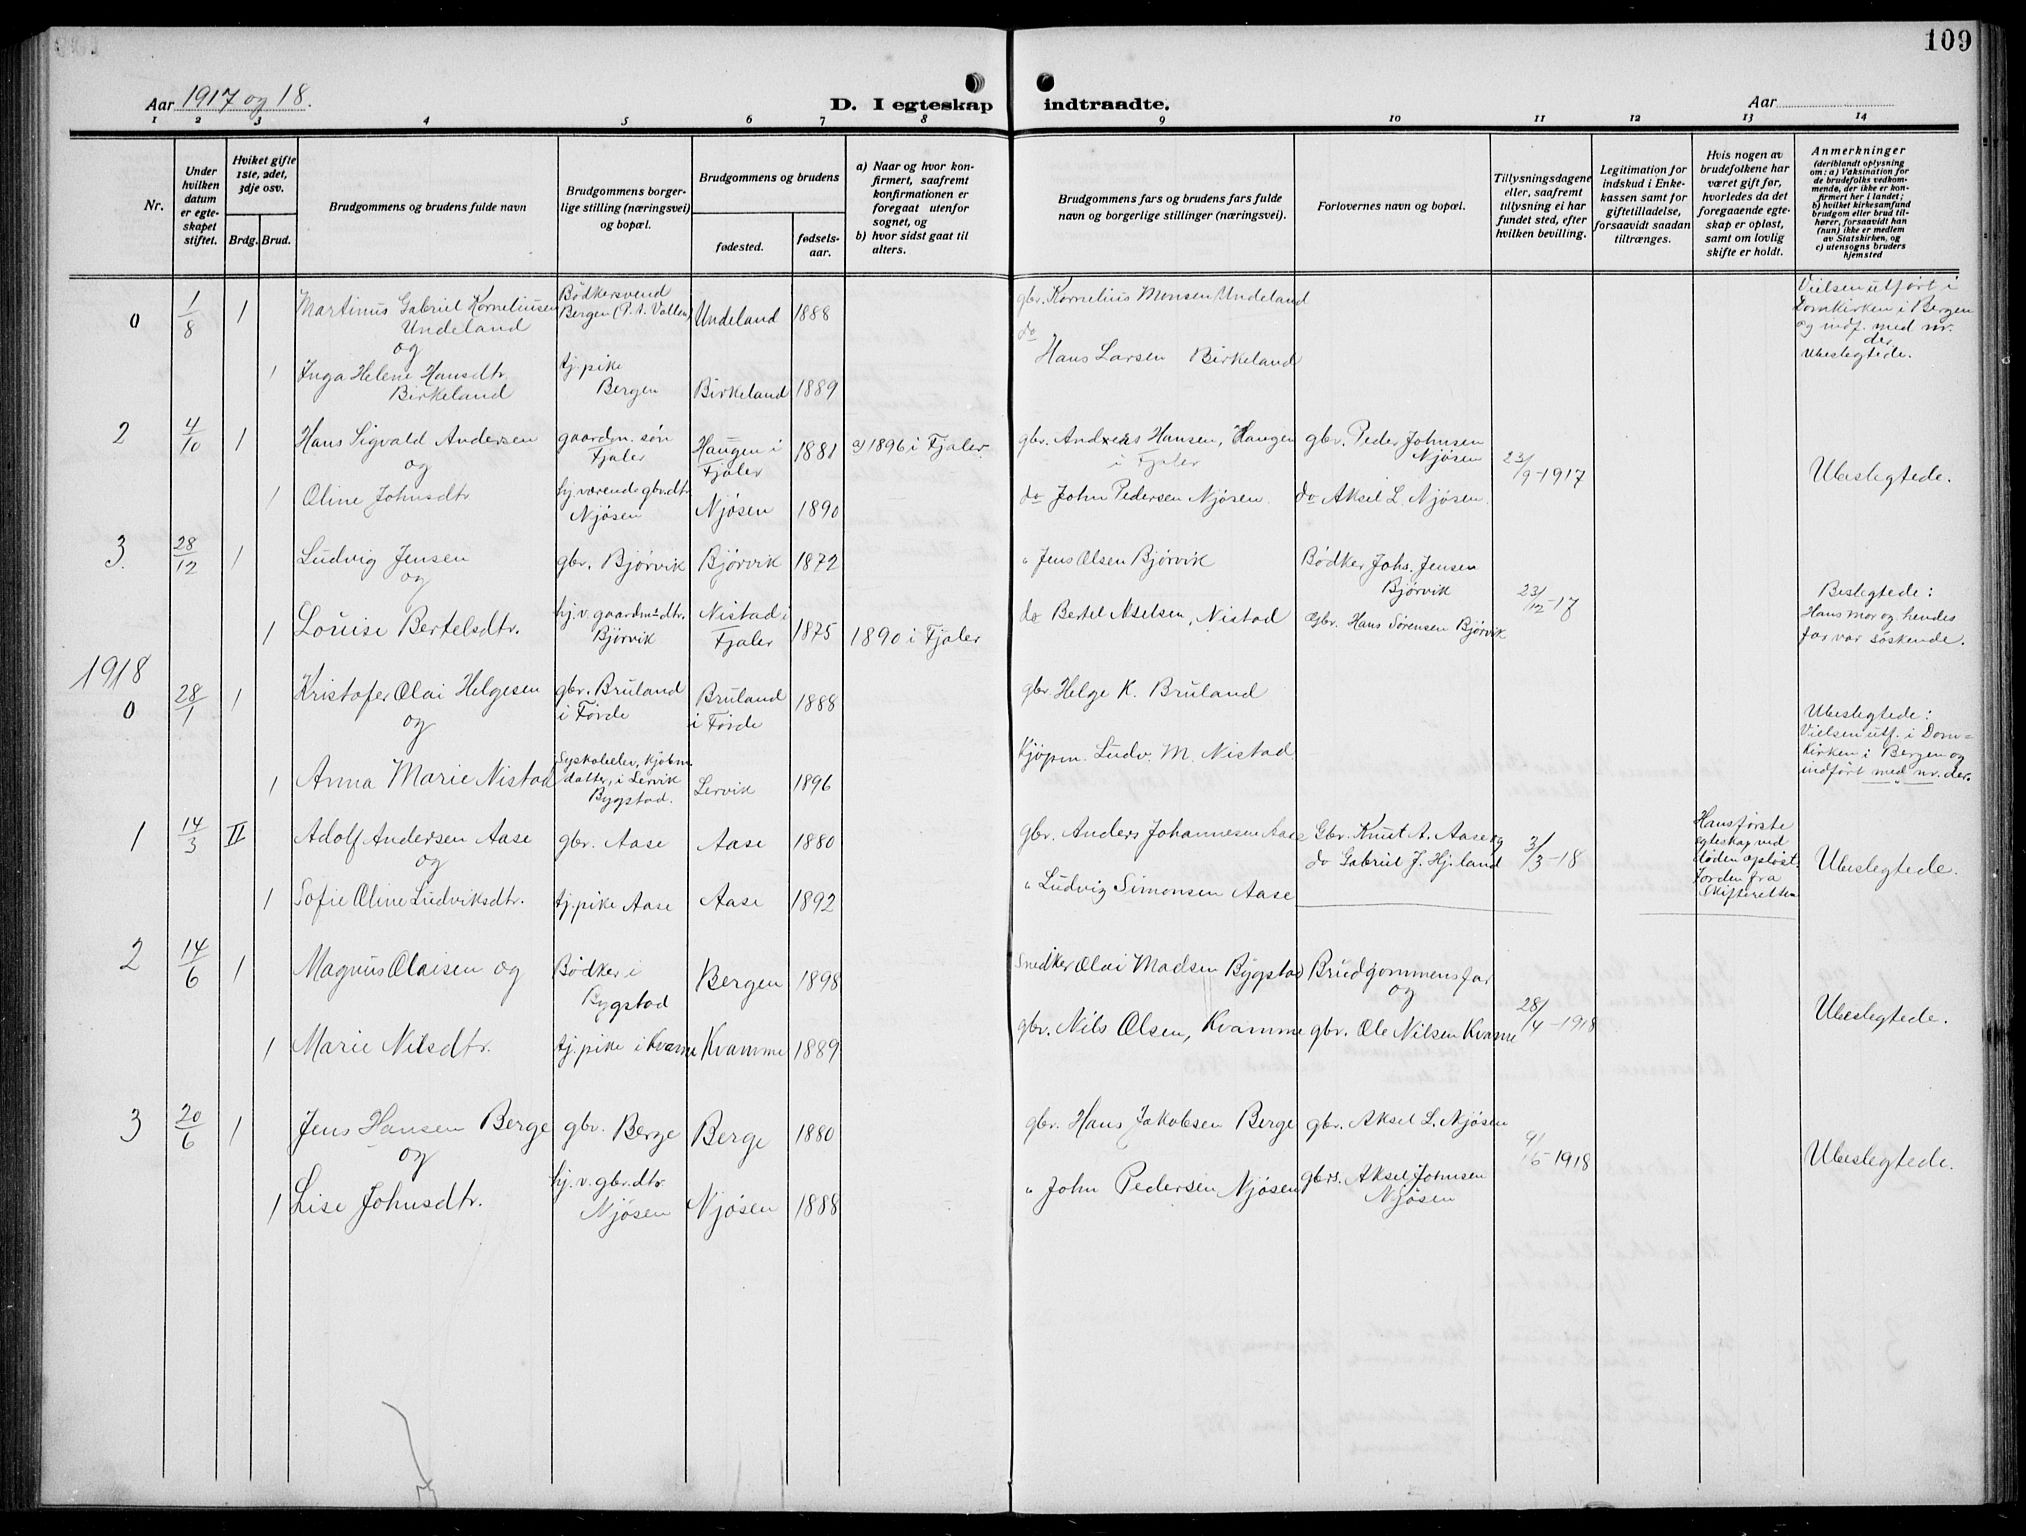 109
Aar 1917 og 18.
D. I egteskap indtraadte.
Aar
1 2 3 4 5 6 7 8 9 10 11 12 13 14
Nr.
Under hvilken datum er egteskapet stiftet.
Hviket gifte 1ste, 2det, 3dje osv.
Brdg. Brud.
Brudgommens og brudens fulde navn
Brudgommens borgerlige stilling (næringsvei) og bopæl.
Brudgommens og brudens
fødested.
fødselsaar.
a) Naar og hvor konfirmert, saafremt konfirmationen er foregaat utenfor sognet, og
b) hvor sidst gaat til alters.
Brudgommens fars og brudens fars fulde navn og borgerlige stillinger (næringsvei).
Forlovernes navn og bopæl.
Tillysningsdagene eller, saafremt tillysning ei har fundet sted, efter hvilken bevilling.
Legitimation for indskud i Enkekassen samt for giftetilladelse, forsaavidt saadan tiltrænges.
Hvis nogen av brudefolkene har været gift før, hvorledes da det foregaaende egteskap er opløst, samt om lovlig skifte er holdt.
Anmerkninger
(deriblandt oplysning om: a) Vaksination for de brudefolks vedkommende, der ikke er konfirmert her i landet; b) hvilket kirkesamfund brudgom eller brud tilhører, forsaavidt han (hun) ikke er medlem av Statskirken, og c) utensogns bruders hjemsted
0 1/8 1 Martinus Gabriel Korneliusen Undeland
og
Bødkersvend Bergen (P. A. Vollen)
Undeland 1888
gbr. Kornelius Monsen Undeland
Vielsen utført i Domkirken i Bergen og indf. med nr. der
Ubeslegtede.
1 Inga Helene Hansdtr. Birkeland
tj. pike Bergen
Birkeland 1889
do Hans Larsen Birkeland
2 4/10 1 Hans Sigvald Andersen
og
gaardm. søn Fjaler
Haugen i Fjaler 1881
a) 1896 i Fjaler.
gbr. Andreas Hansen, Haugen i Fjaler
gbr. Peder Johnsen Njøsen
23/9-1917
Ubeslegtede.
1 Oline Johnsdtr
hj. værende gbr.dtr Njøsen
Njøsen 1890
do John Pedersen Njøsen.
do Aksel L. Njøsen.
3. 28/12 1 Ludvig Jensen
og
gbr. Bjørvik
Bjørvik 1872
" Jens Olsen Bjørvik
Bødker Johs. Jensen Bjørvik
23/12-17
Beslegtede:
Hans mor og hendes
far var søskende.
1 Louise Bertelsdtr.
hj. v. gaardm's dtr. Bjørvik
Nistad i Fjaler 1875
1890 i Fjaler
do Bertel Nielsen, Nistad
Gbr. Hans Sørensen Bjørvik
1918
0 28/1 1 Kristofer Olai Helgesen
og
gbr. Bruland i Førde
Bruland i Førde 1888
gbr Helge K. Bruland
Ubeslegtede:
Vielsen utf. i Dom=
Kirken i Bergen og
indført med nr. der.
1 Anna Marie Nistad
datter, i Lervik Bygstad.
Lervik 1896
Kjøpm. Ludv. M. Nistad
1 14/3 II Adolf Andersen Aase
og
gbr. Aase
Aase 1880
gbr. Anders Johannesen Aase
Gbr. Knut A. Aase og
do Gabriel J. Hj.land
3/3-18
Hans første
egteskap ved
døden opløst.
fra
Skifteretten
Ubeslegtede.
1 Sofie Oline Ludviksdtr.
tj. pike Aase
Aase 1892
" Ludvig Simonsen Aase
2 14/6 1 Magnus Olaisen og
Bødker i Bygstad
Bergen 1898
Snedker Olai Madsen Bygstad
Brudgommens far
og
28/4-1918
Ubeslegtede.
1 Marie Nilsdtr.
tj. pike i Kvamme
Kvamme 1889
gbr. Nils Olsen, Kvamme
gbr. Ole Nilsen Kvamme
3 20/6 1 Jens Hansen Berge
og
gbr. Berge
Berge 1880
gbr. Hans Jakobsen Berge
gbr. Aksel L. Njøsen
9/5-1918
Ubeslegtede.
1 Lise Johnsdtr.
hj. v. gbr. dtr. Njøsen
Njøsen 1888
" John Pedersen Njøsen
gbrs. Aksel Johnsen Njøsen